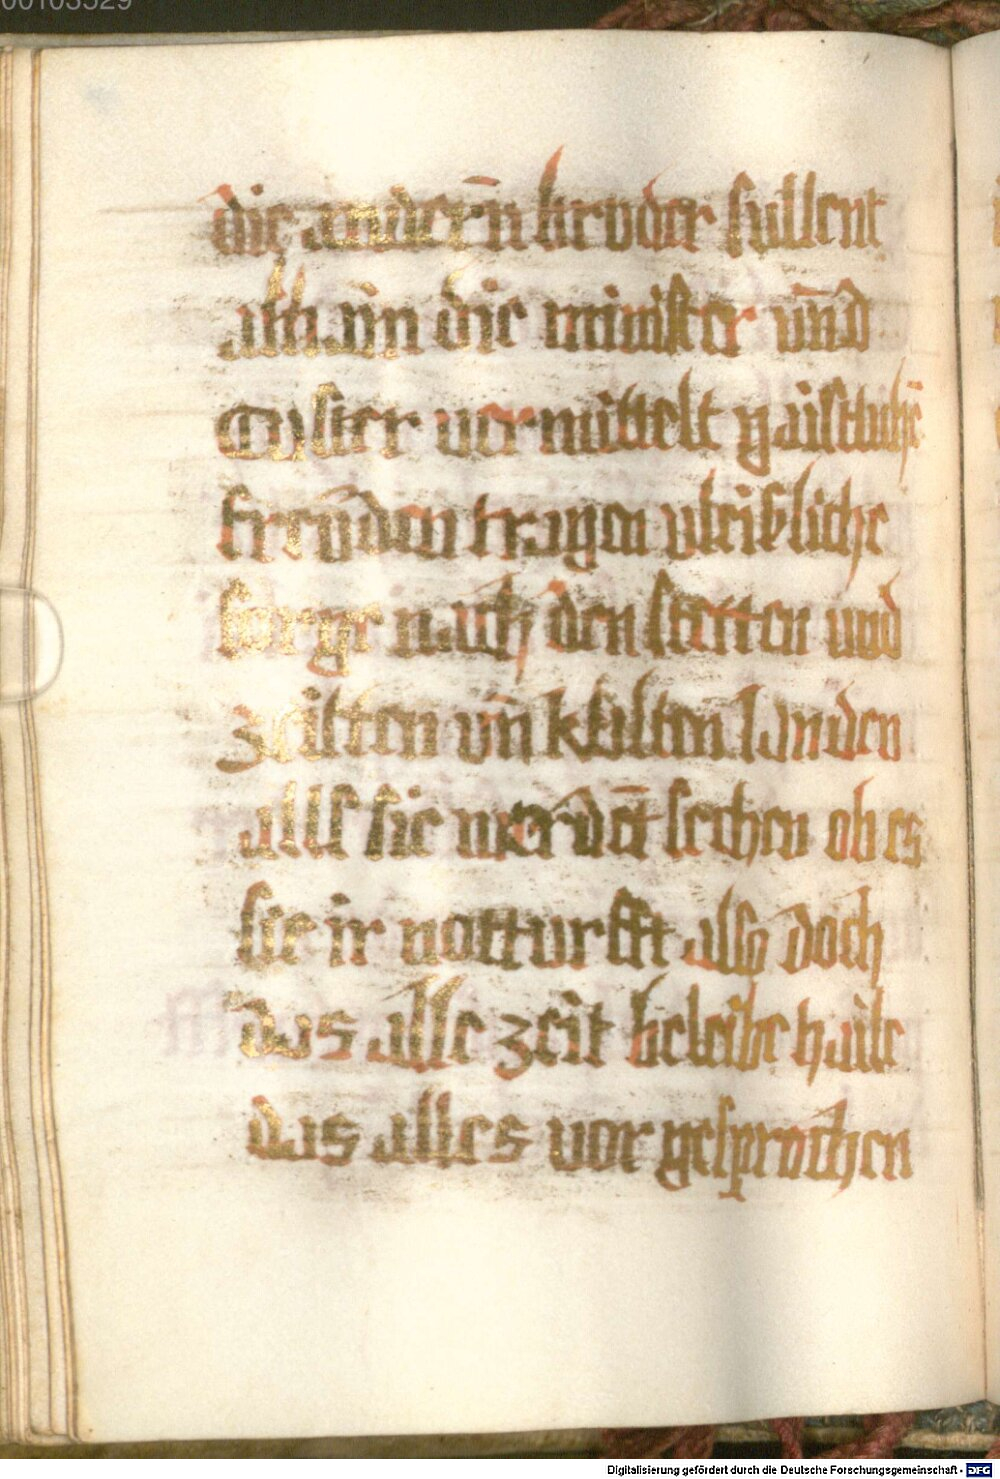 00103529
die andern̄ bruder sullent
allain die minister vn̄d
Custer vermittelt gaistlichē
freu̇den tragen vleissliche
sorge nach den stetten und
zeitten vn̄ kalten landen
alls sie werdēt sechen ob es
sie ir notturfft also doch
das alle zeit beleibe haile
das alles vor gesprochen
Digitalisierung gefördert durch die Deutsche Forschungsgemeinschaft - DFG